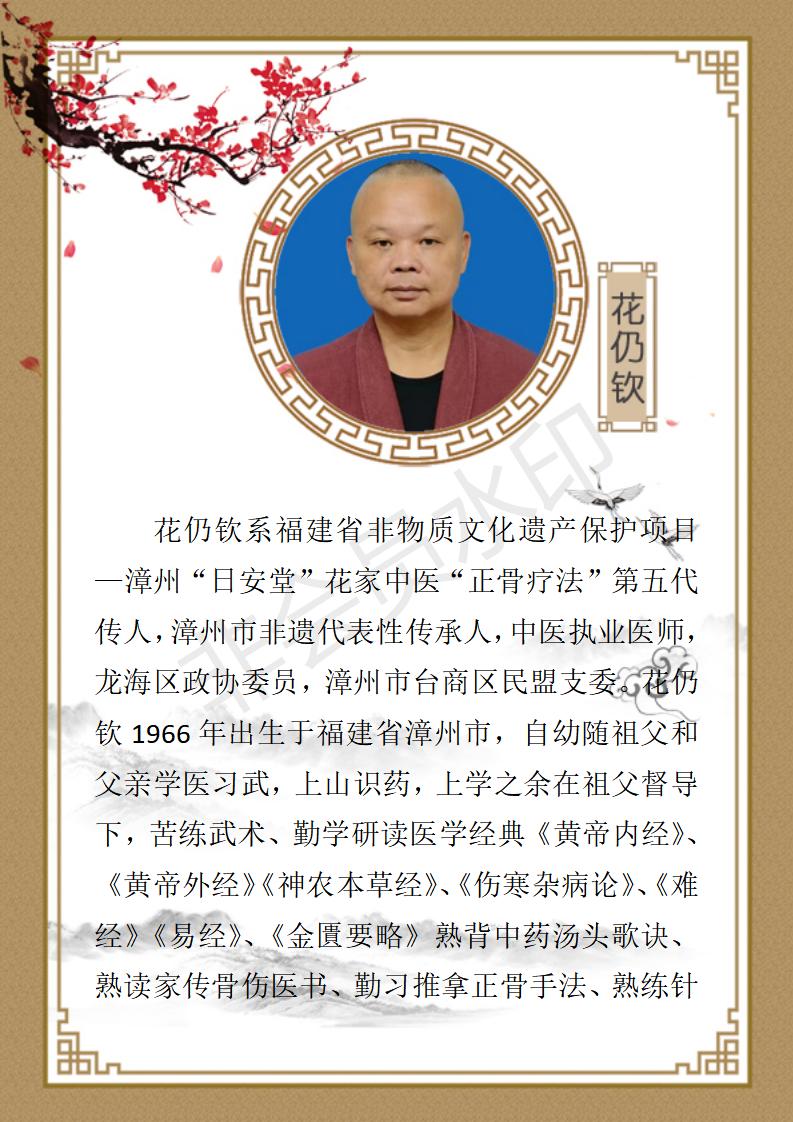 花仍钦
花仍钦系福建省非物质文化遗产保护项目
—漳州“日安堂”花家中医“正骨疗法”第五代
传人，漳州市非遗代表性传承人，中医执业医师，
龙海区政协委员，漳州市台商区民盟支委。花仍
钦 1966 年出生于福建省漳州市，自幼随祖父和
父亲学医习武，上山识药，上学之余在祖父督导
下，苦练武术、勤学研读医学经典《黄帝内经》、
《黄帝外经》《神农本草经》、《伤寒杂病论》、《难
经》《易经》、《金匮要略》熟背中药汤头歌诀、
熟读家传骨伤医书、勤习推拿正骨手法、熟练针
非会员水印